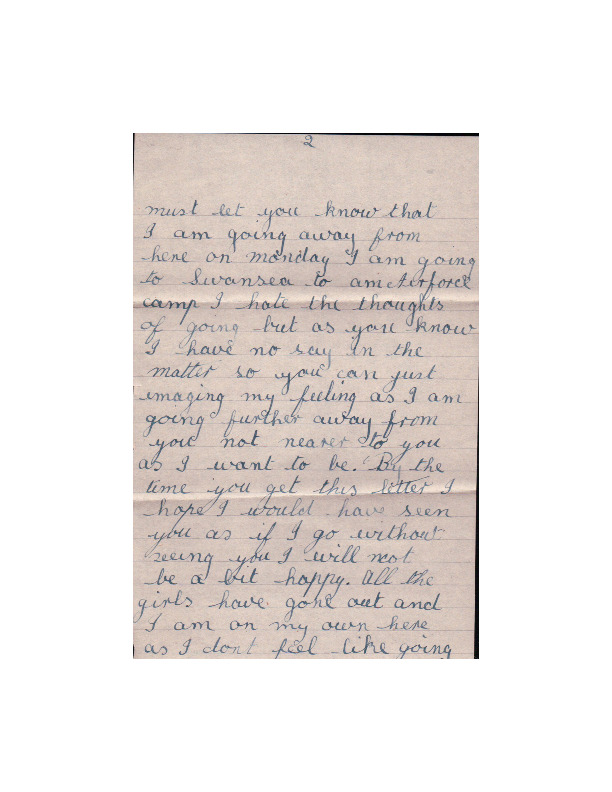 2
must let you know that
I am going away from
here on monday I am going
to Swansea to an airforce
camp I hate the thoughts
of going but as you know
I have no say in the
matter so you can just
imaging my feeling as I am
going further away from
you not nearer to you
as I want to be. By the
time you get this letter I
hope I would have seen
you as if I go without
seeing you I will not
be a bit happy. All the
girls have gone out and
I am on my own here
as I dont feel like going